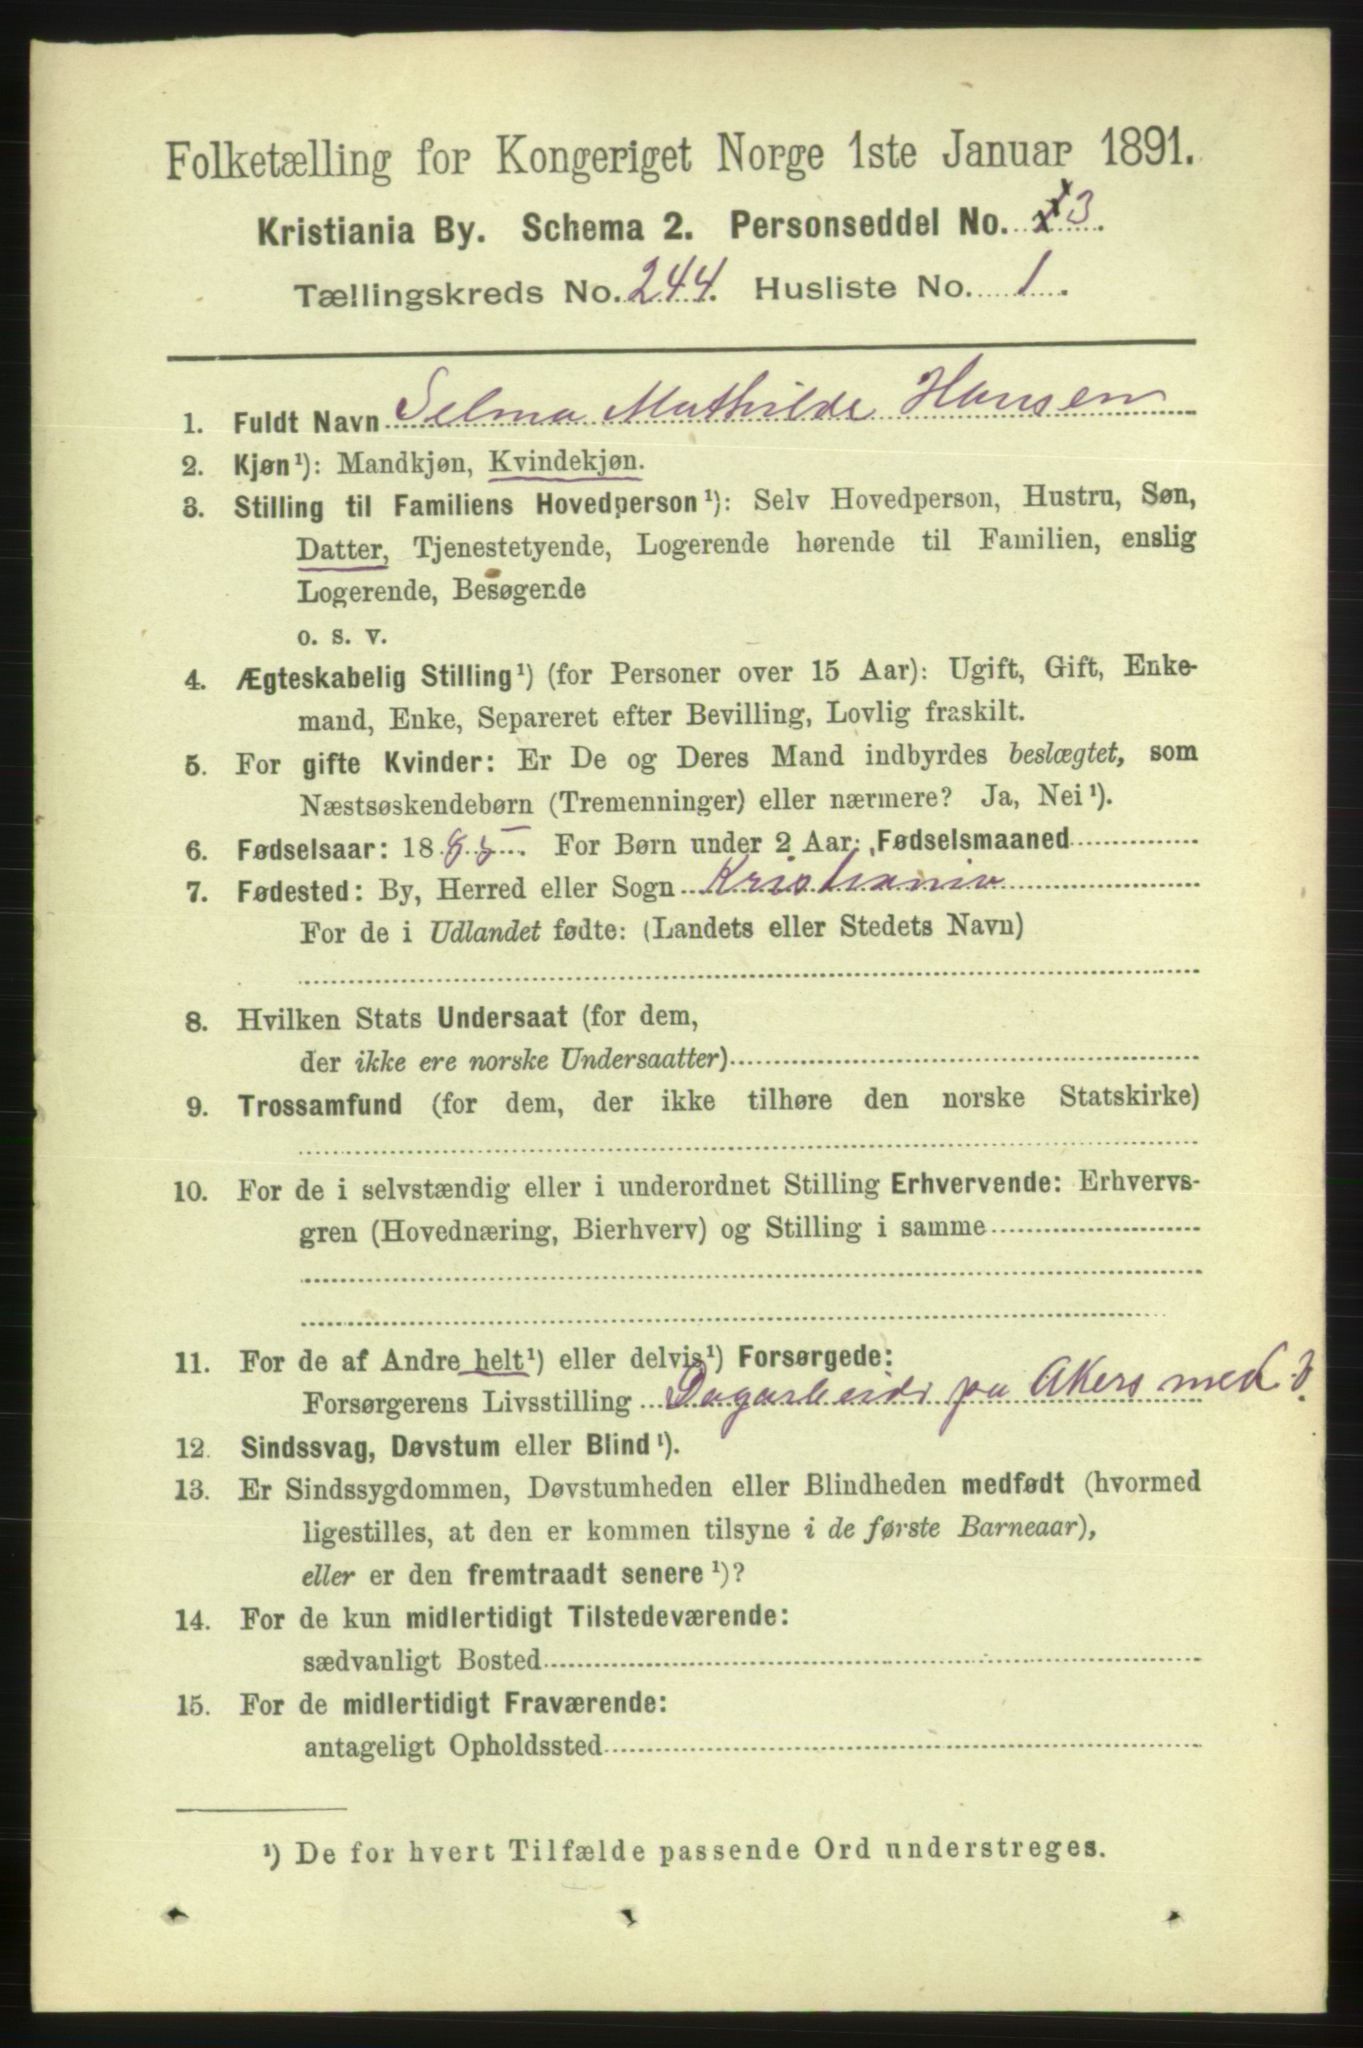 Folketælling for Kongeriget Norge 1ste Januar 1891.
Kristiania By. Schema 2. Personseddel No. 3.
Tællingskreds No. 244. Husliste No. 1.
1. Fuldt Navn Selma Mathilde Hansen
2. Kjøn¹): Mandkjøn, Kvindekjøn.
3. Stilling til Familiens Hovedperson¹): Selv Hovedperson, Hustru, Søn,
Datter, Tjenestetyende, Logerende hørende til Familien, enslig
Logerende, Besøgende
o. s. v.
4. Ægteskabelig Stilling¹) (for Personer over 15 Aar): Ugift, Gift, Enke-
mand, Enke, Separeret efter Bevilling, Lovlig fraskilt.
5. For gifte Kvinder: Er De og Deres Mand indbyrdes beslægtet, som
Næstsøskendebørn (Tremenninger) eller nærmere? Ja, Nei¹).
6. Fødselsaar: 1885. For Børn under 2 Aar: Fødselsmaaned
7. Fødested: By, Herred eller Sogn Kristiania
For de i Udlandet fødte: (Landets eller Stedets Navn)
8. Hvilken Stats Undersaat (for dem,
der ikke ere norske Undersaatter)
9. Trossamfund (for dem, der ikke tilhøre den norske Statskirke)
10. For de i selvstændig eller i underordnet Stilling Erhvervende: Erhvervs-
gren (Hovednæring, Bierhverv) og Stilling i samme
11. For de af Andre helt¹) eller delvis¹) Forsørgede:
Forsørgerens Livsstilling Dagarbeide pa Akers mek
12. Sindssvag, Døvstum eller Blind¹).
13. Er Sindssygdommen, Døvstumheden eller Blindheden medfødt (hvormed
ligestilles, at den er kommen tilsyne i de første Barneaar),
eller er den fremtraadt senere¹)?
14. For de kun midlertidigt Tilstedeværende:
sædvanligt Bosted
15. For de midlertidigt Fraværende:
antageligt Opholdssted
¹) De for hvert Tilfælde passende Ord understreges.